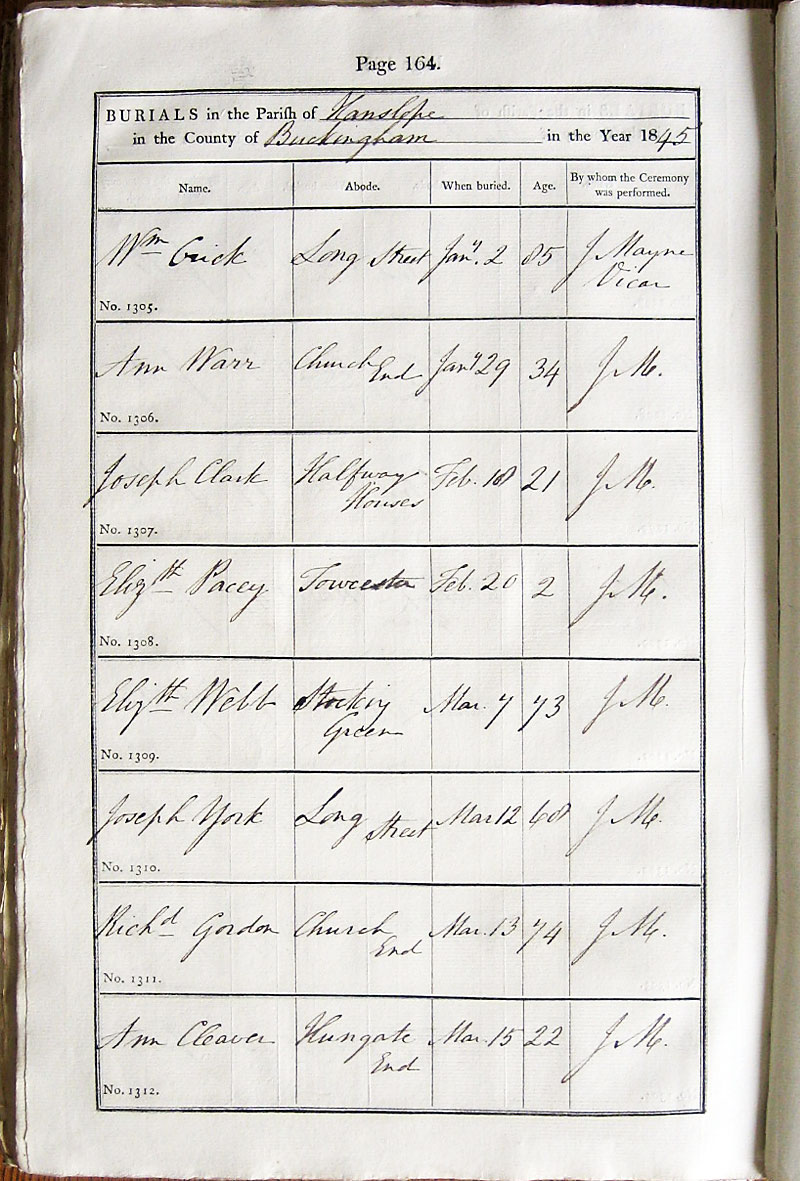 Page 164.
BURIALS in the Parish of Hanslope
in the County of Buckingham in the Year 1845
Name. Abode. When buried. Age. By whom the Ceremony was performed.
Wm Crick Long Street Jany. 2 85 J Mayne Vicar
No. 1305.
Ann Warr Church End Jany 29 34 J M.
No. 1306.
Joseph Clark Halfway Houses Feb. 18 21 J M.
No. 1307.
Elizth Pacey Towcester Feb. 20 2 J M.
No. 1308.
Elizth Webb Stocking Green Mar. 7 73 J M.
No. 1309.
Joseph York Long Street Mar 12 68 J M.
No. 1310.
Richd Gordon Church End Mar. 13 74 J M.
No. 1311.
Ann Cleaver Hungate End Mar. 15 22 J M.
No. 1312.